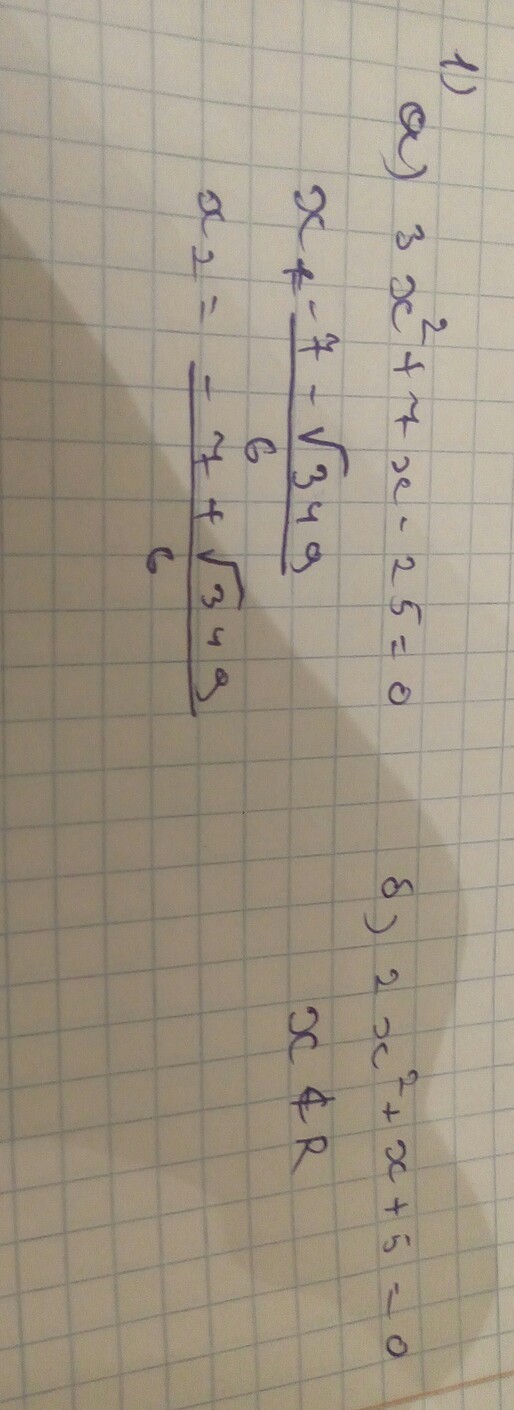 1)
а) 3x² + 7x - 25 = 0
x₁ = -7 - √349 / 6
x₂ = -7 + √349 / 6
б) 2x² + x + 5 = 0
x ∉ R